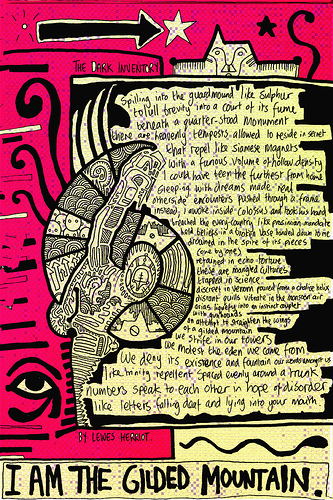 THE DARK INVENTORY
Spilling into the guardmound like sulphur
to lull brevity into a court of its fume
beneath a quarter-stood monument
there are heavenly tempests, allowed to reside in secret
that repel like siamese magnets
with a famous volume of hollow density
I could have been the furthest from home
sleeping with dreams made real
others' encounters pushed through a frame
instead, I awoke inside Colossus and took his hand
breathed the
hold beliefs in a broken base handed down to me
drowned in the spire of its pieces
(one by one)
retained in echo-fortune
these are mangled cultures
trapped in science
descent in venom poured from a chalice
distant quills vibrate in the monsoon air
bring identity into an instant couplet
with
in attempt to straighten the wings
of a gilded mountain
we strife in our towers
we molest the eden we came from
We deny its existence and fountain our words amongst us
like trinity repellent spaced evenly around a trunk
numbers speak to each other in hope of disorder
like letters falling deaf and lying into your mouth
BY LEWES HERRIOT.
I AM THE GILDED MOUNTAIN.